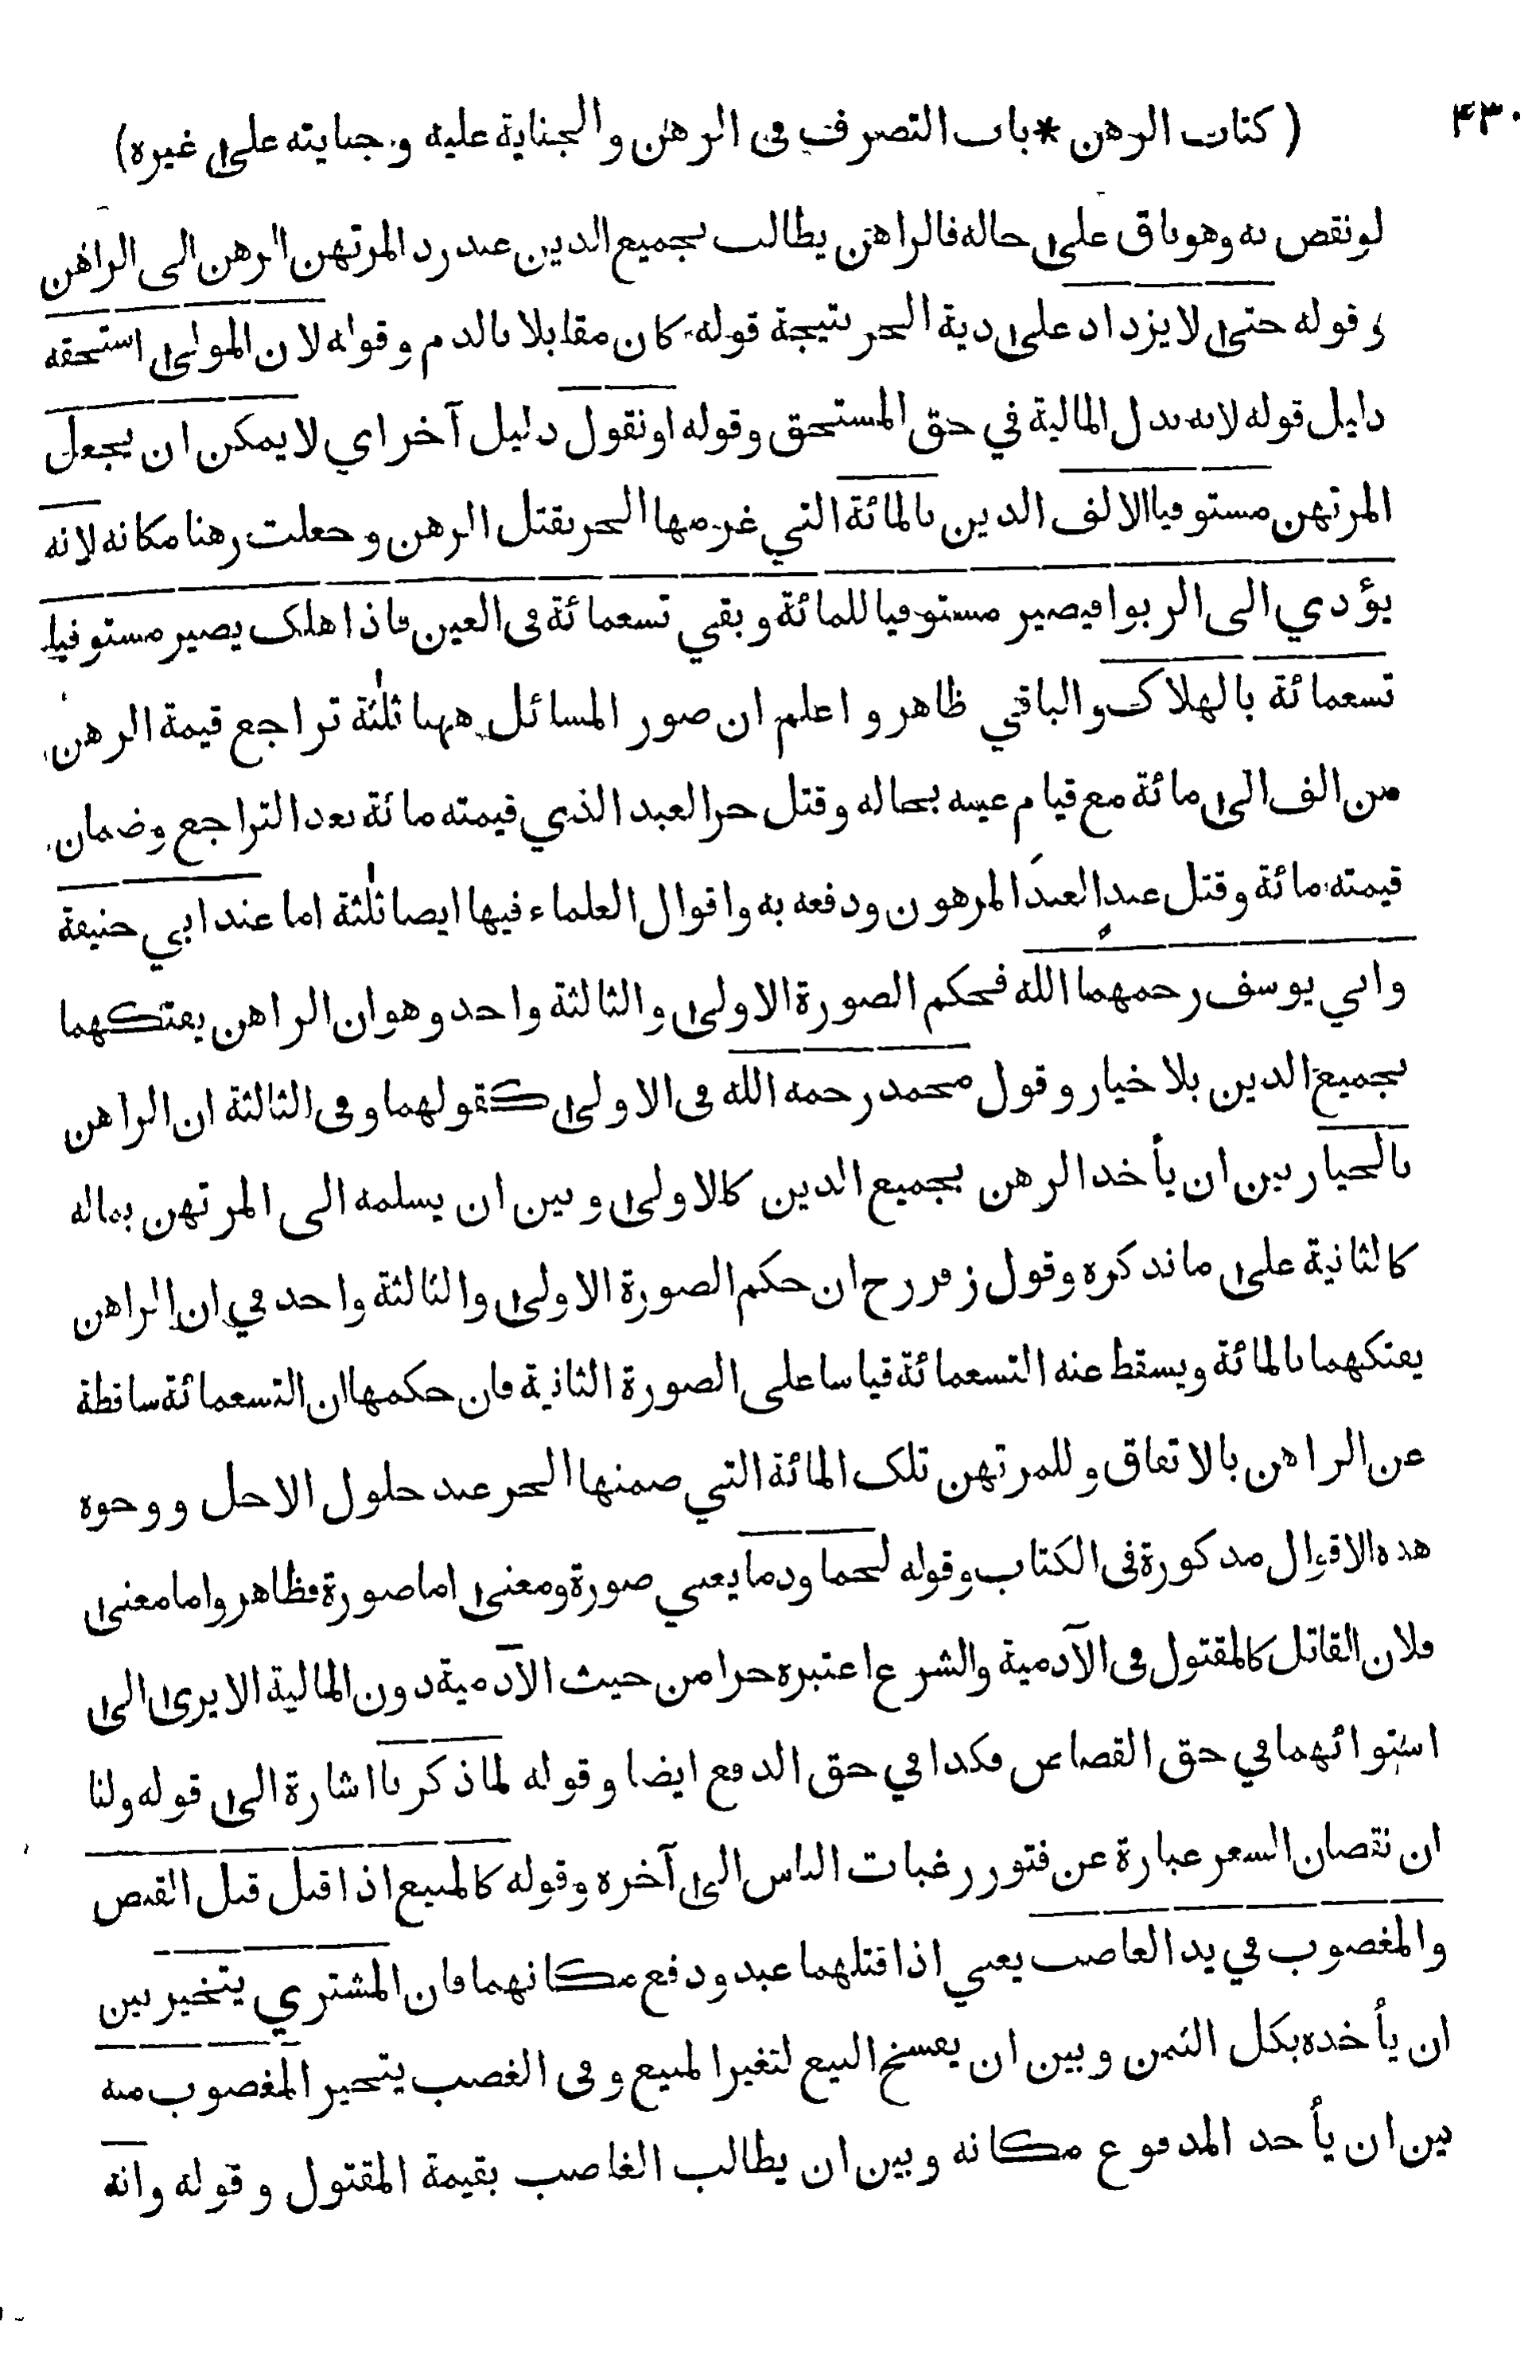 ۴۳۰ ( كتاب الرهن * باب التصرف فى الرهن والجناية عليه وجنايته على غيره )
لو نقص به وهو باق على حاله فالراهن يطالب بجميع الدين عند رد المرتهن الرهن الى الراهن
وقوله حتى لا يزداد على دية الحر نتيجة قوله كان مقابلا بالدم وقوله لان المولى استحقه
دليل قوله لانه بدل المالية في حق المستحق وقوله او نقول دليل آخر اي لا يمكن ان يجعل
المرتهن مستوفيا الالف الدين بالمائة التي غرمها الحر بقتل الرهن وجعلت رهنا مكانه لانه
يؤدي الى الربوا فيصير مستوفيا للمائة وبقي تسعمائة فى العين فاذا هلك يصير مستوفيا
تسعمائة بالهلاك والباقي ظاهر واعلم ان صور المسائل ههنا ثلٰثة تراجع قيمة الرهن
من الف الى مائة مع قيام عينه بحاله وقتل حر العبد الذي قيمته مائة بعد التراجع وضمان
قيمته مائة وقتل عبد العبد المرهون ودفعه به واقوال العلماء فيها ايضا ثلٰثة اما عند ابي حنيفة
وابي يوسف رحمهما الله فحكم الصورة الاولى والثالثة واحد وهو ان الراهن يفتكهما
بجميع الدين بلا خيار وقول محمد رحمه الله فى الاولى كقولهما وفى الثالثة ان الراهن
بالخيار بين ان يأخذ الرهن بجميع الدين كالاولى وبين ان يسلمه الى المرتهن بماله
كالثانية على ما نذكره وقول زفر رح ان حكم الصورة الاولى والثالثة واحد في ان الراهن
يفتكهما بالمائة ويسقط عنه التسعمائة قياسا على الصورة الثانية فان حكمها ان التسعمائة ساقطة
عن الراهن بالاتفاق وللمرتهن تلك المائة التي ضمنها الحر عند حلول الاجل ووجوه
هذه الاقوال مذكورة فى الكتاب وقوله لحما ودما يعني صورة ومعنى اما صورة فظاهر واما معنى
فلان القاتل كالمقتول فى الآدمية والشرع اعتبره حرا من حيث الآدمية دون المالية الا يرى الى
استوائهما في حق القصاص فكذا في حق الدفع ايضا وقوله لما ذكرنا اشارة الى قوله ولنا
ان نقصان السعر عبارة عن فتور رغبات الناس الى آخره وقوله كالمبيع اذا قتل قبل القبض
والمغصوب في يد الغاصب يعني اذا قتلهما عبد ودفع مكانهما فان المشتري يتخير بين
ان يأخذه بكل الثمن وبين ان يفسخ البيع لتغير المبيع وفى الغصب يتخير المغصوب منه
بين ان يأخذ المدفوع مكانه وبين ان يطالب الغاصب بقيمة المقتول وقوله وانه